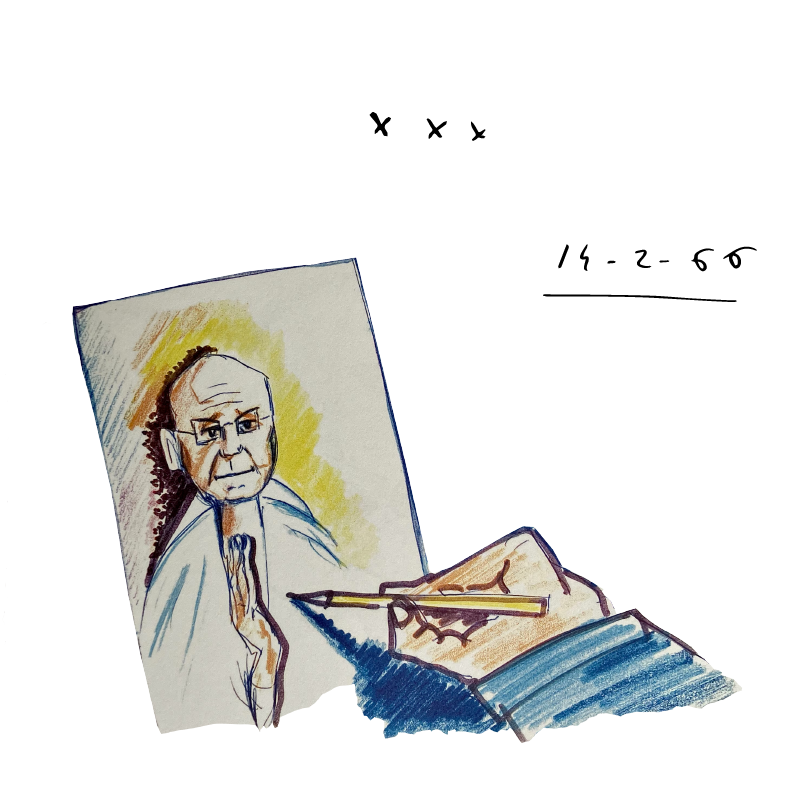 x x x
14-2-66